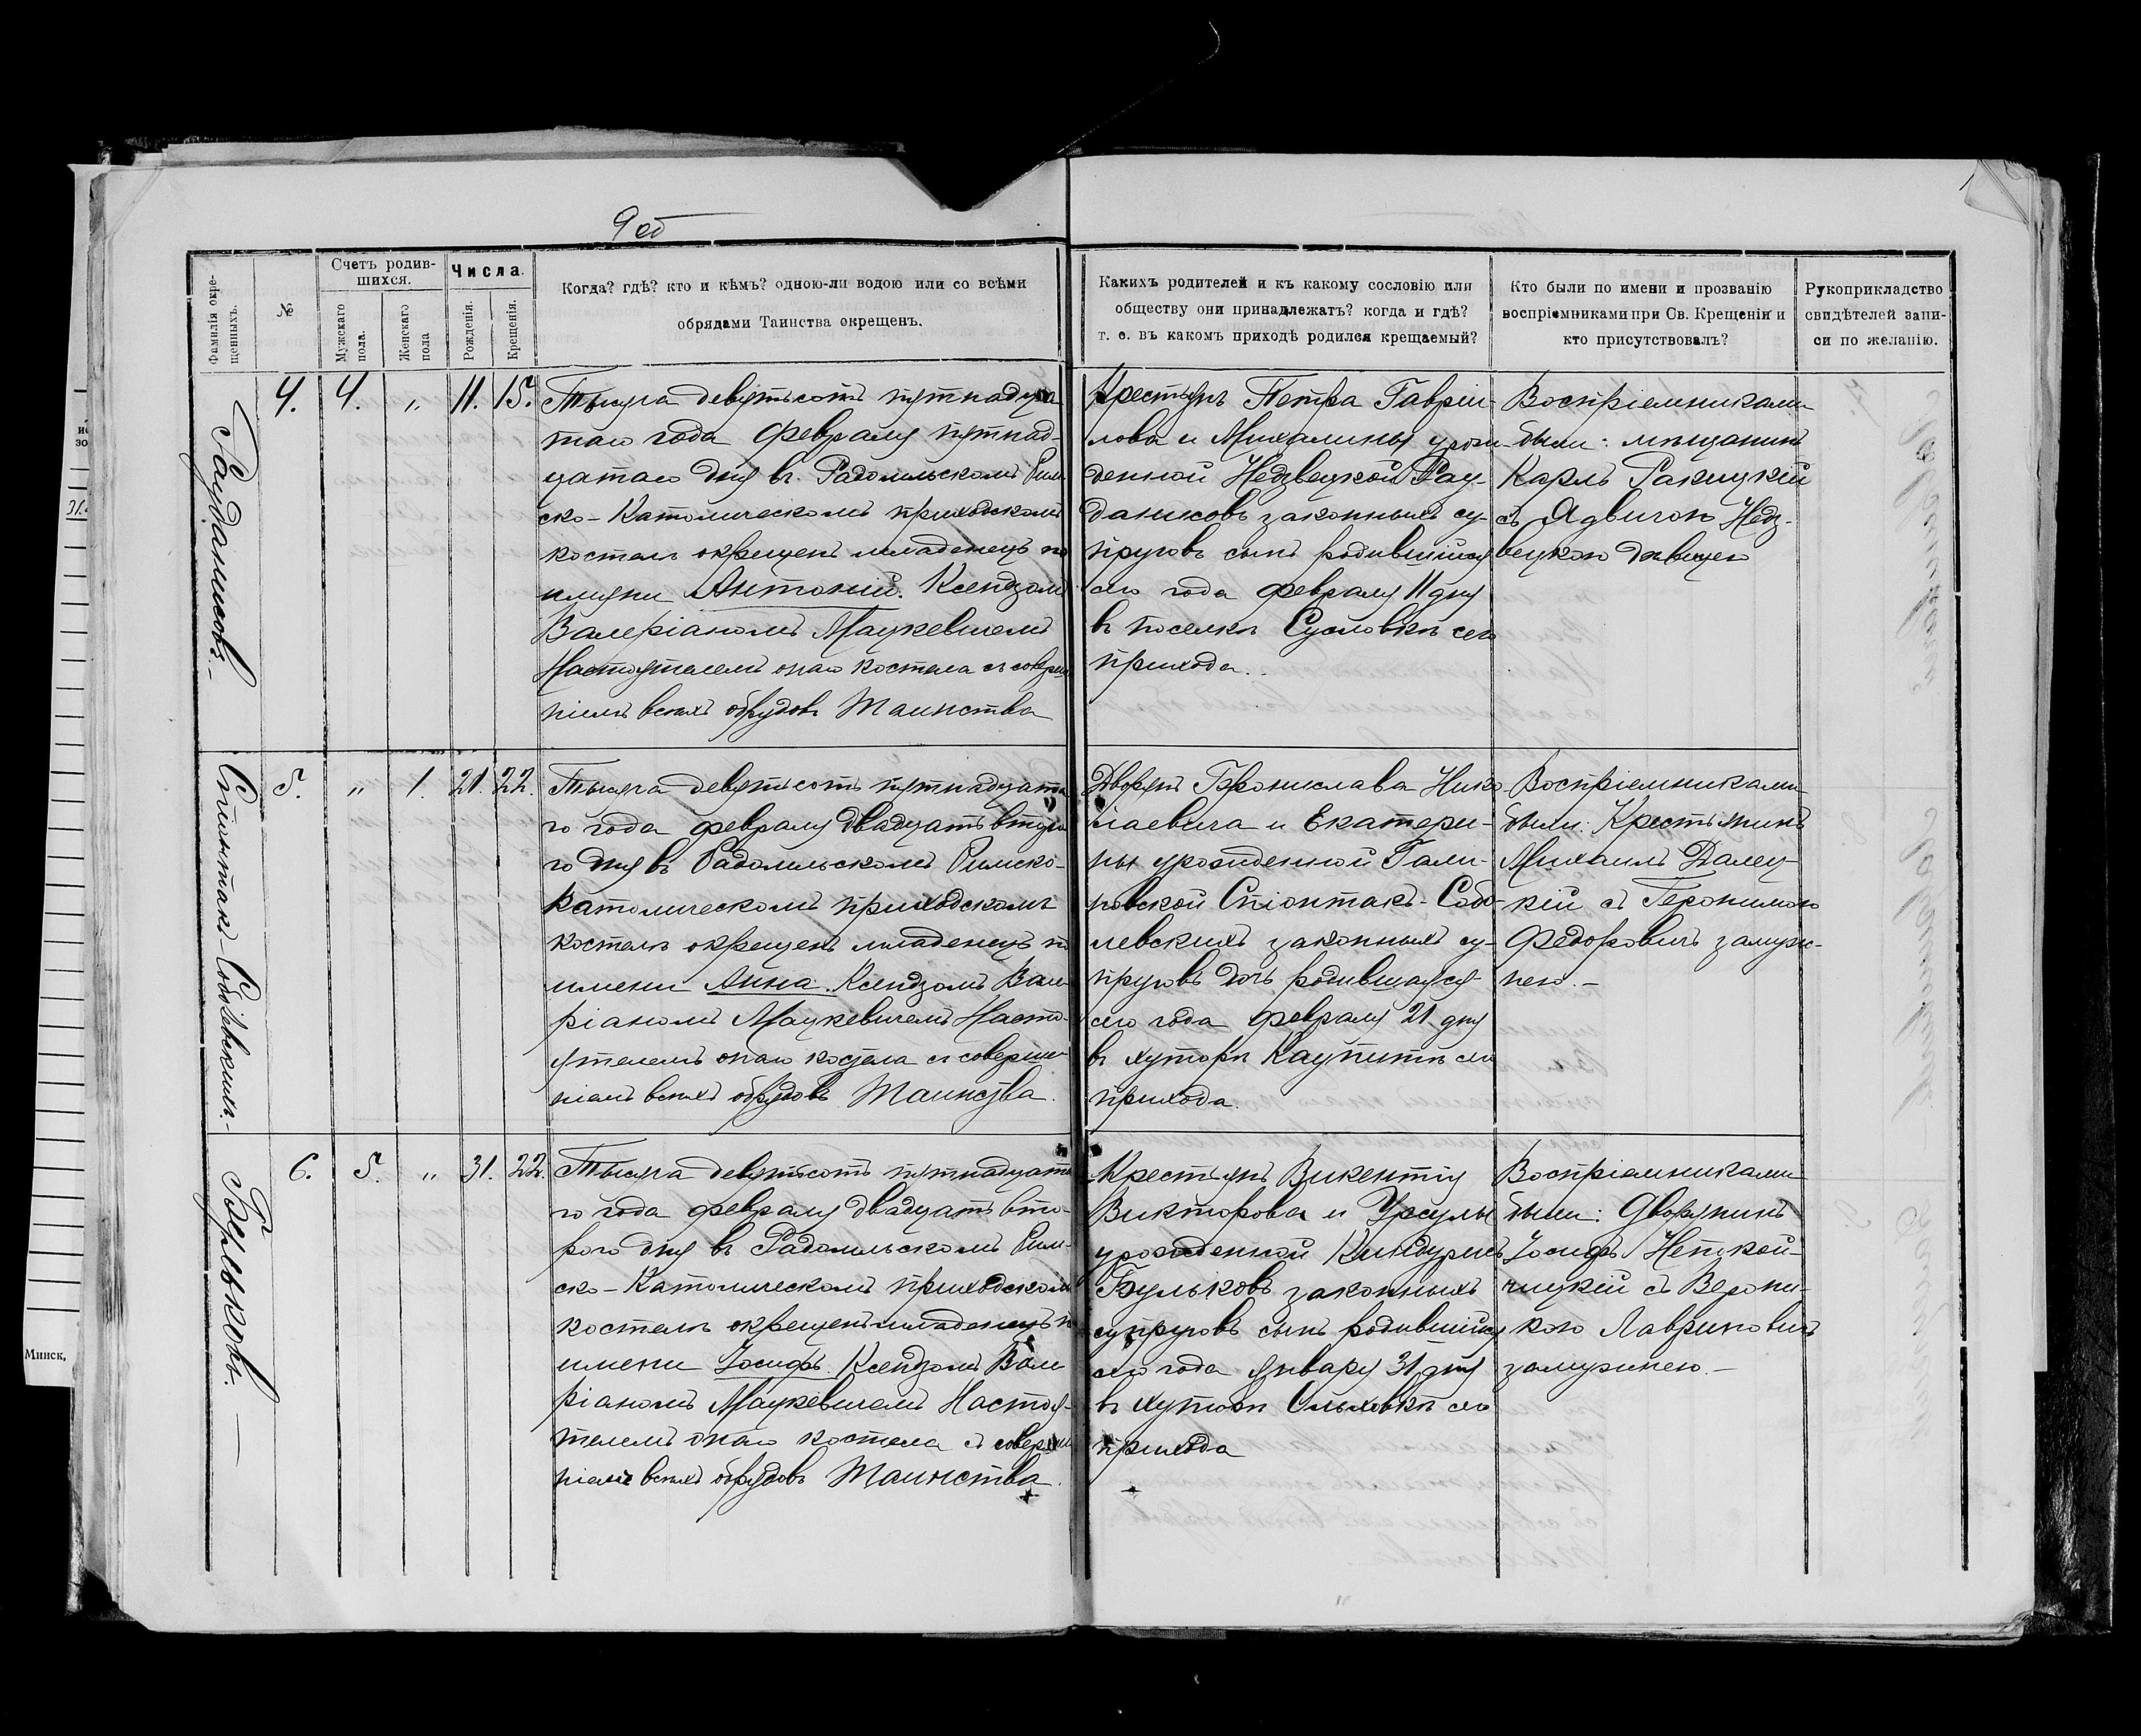 9 об
Фамилія окре-
щенныхъ.
№
Счетъ родив-
шихся.
Мужскаго
пола.
Женскаго
пола
Числа.
Рожденія.
Крещенія.
Когда? гдѣ? кто и кѣмъ? одною-ли водою или со всѣми
обрядами Таинства окрещенъ.
Какихъ родителей и къ какому сословію или
обществу они принадлежатъ? когда и гдѣ?
т. е. въ какомъ приходѣ родился крещаемый?
Кто были по имени и прозванію
воспріемниками при Св. Крещеніи и
кто присутствовалъ?
Рукоприкладство
свидѣтелей запи-
си по желанію.
4. 4. „ 11. 15.
Тысяча девятьсотъ пятнадца
таго года февраля пятнад-
цатаго дня въ Радомльскомъ Рим
ско-Католическомъ приходскомъ
костелѣ окрещенъ младенецъ по
имени Антоній. Ксендзомъ
Валеріаномъ Мацкевичемъ
Настоятелемъ онаго костела съ соверше
ніемъ всѣхъ обрядовъ Таинства
Крестьянъ Петра Гаврии-
лова и Михалины урож-
денной Недзвецкой Рау
даниковъ законныхъ су-
пруговъ сынъ родившійся
сего года февраля 11 дня
въ поселкѣ Сусловкѣ сего
прихода.
Воспріемниками
были: мѣщанинъ
Карлъ Ракицкій
съ Ядвигою Недз-
вецкою дѣвицею
Стпіонтакъ-Соболевскихъ.-
5. „ 1. 21. 22.
Тысяча девятьсотъ пятнадцата
го года февраля двадцать второ
го дня въ Радомльскомъ Римско-
Католическомъ приходскомъ
костелѣ окрещенъ младенецъ по
имени Анна. Ксендзомъ Вале
ріаномъ Мацкевичемъ Насто-
ятелемъ онаго костела съ соверше
ніемъ всѣхъ обрядовъ Таинства.
Дворянъ Бронислава Нико-
лаевича и Екатери-
ны урожденной Гали-
новской Спіонтакъ-Собо-
левскихъ законныхъ су-
пруговъ дочь родившаяся
сего года февраля 21 дня
въ хуторѣ сего
прихода.
Воспріемниками
были: Крестьянинъ
Михаилъ Далец-
кій съ Геронимою
Федоровичъ замуж-
нею.-
Бульковъ. -
6. 5. „ 31. 22.
Тысяча девятьсотъ пятнадцата
го года февраля двадцать вто-
рого дня въ Радомльскомъ Рим-
ско-Католическомъ приходскомъ
костелѣ окрещенъ младенецъ по
имени Іосифъ. Ксендзомъ Вале
ріаномъ Мацкевичемъ Настоя-
телемъ онаго костела съ соверше
ніемъ всѣхъ обрядовъ Таинства.
Крестьянъ Викентія
Викторова и Урсулы
урожденной
Бульковъ законныхъ
супруговъ сынъ родившійся
сего года января 31 дня
въ хуторѣ Ольховкѣ сего
прихода
Воспріемниками
были: Дворянинъ
Іосифъ
съ Верони-
кою Лавриновичъ
замужнею.-
Минск,